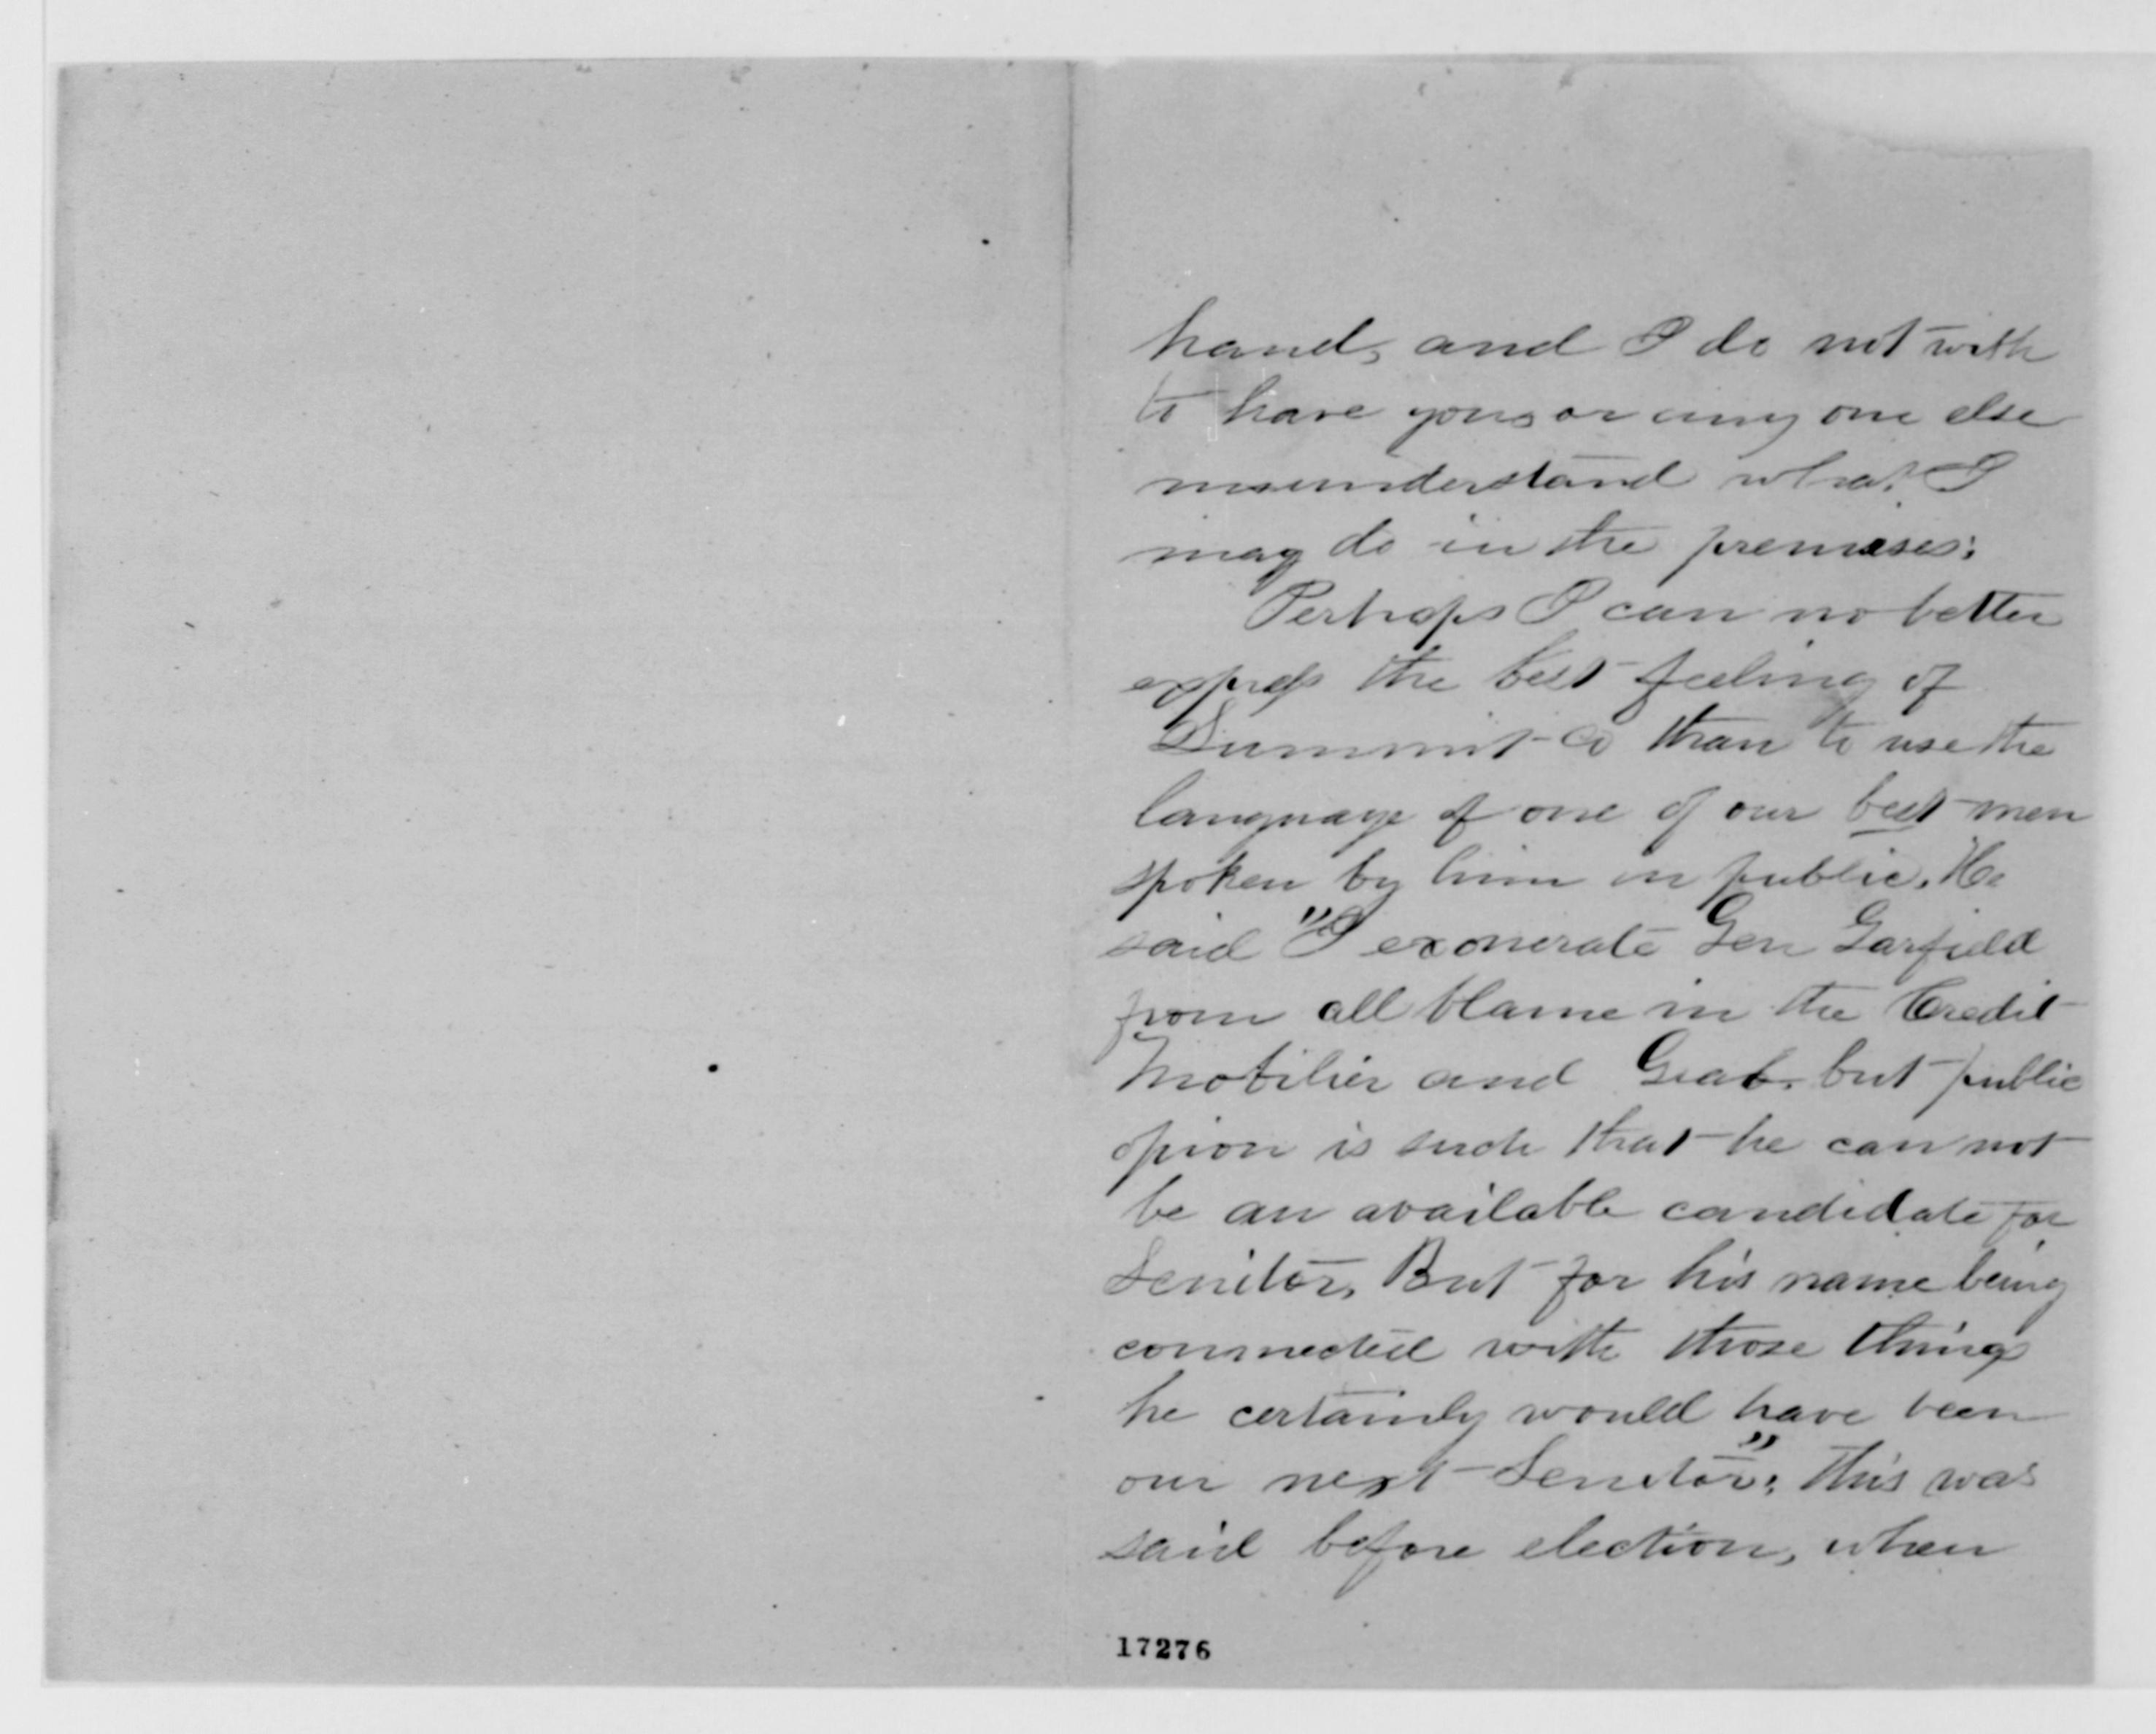 hand, and I do not wish
to have you or any one else
misunderstand what I
may do in the premises.
Perhaps I can no better
express the best feeling of
Summit Co than to use the
language of one of our best men
spoken by him in public. He
said "I exonerate Gen Garfield
from all blame in the Credit
Mobilier and Grab, but public
opion is such that he can not
be an available candidate for
Senitor, But for his name being
connected with those things
he certainly would have been
our next Senitor". This was
said before election, when
17276